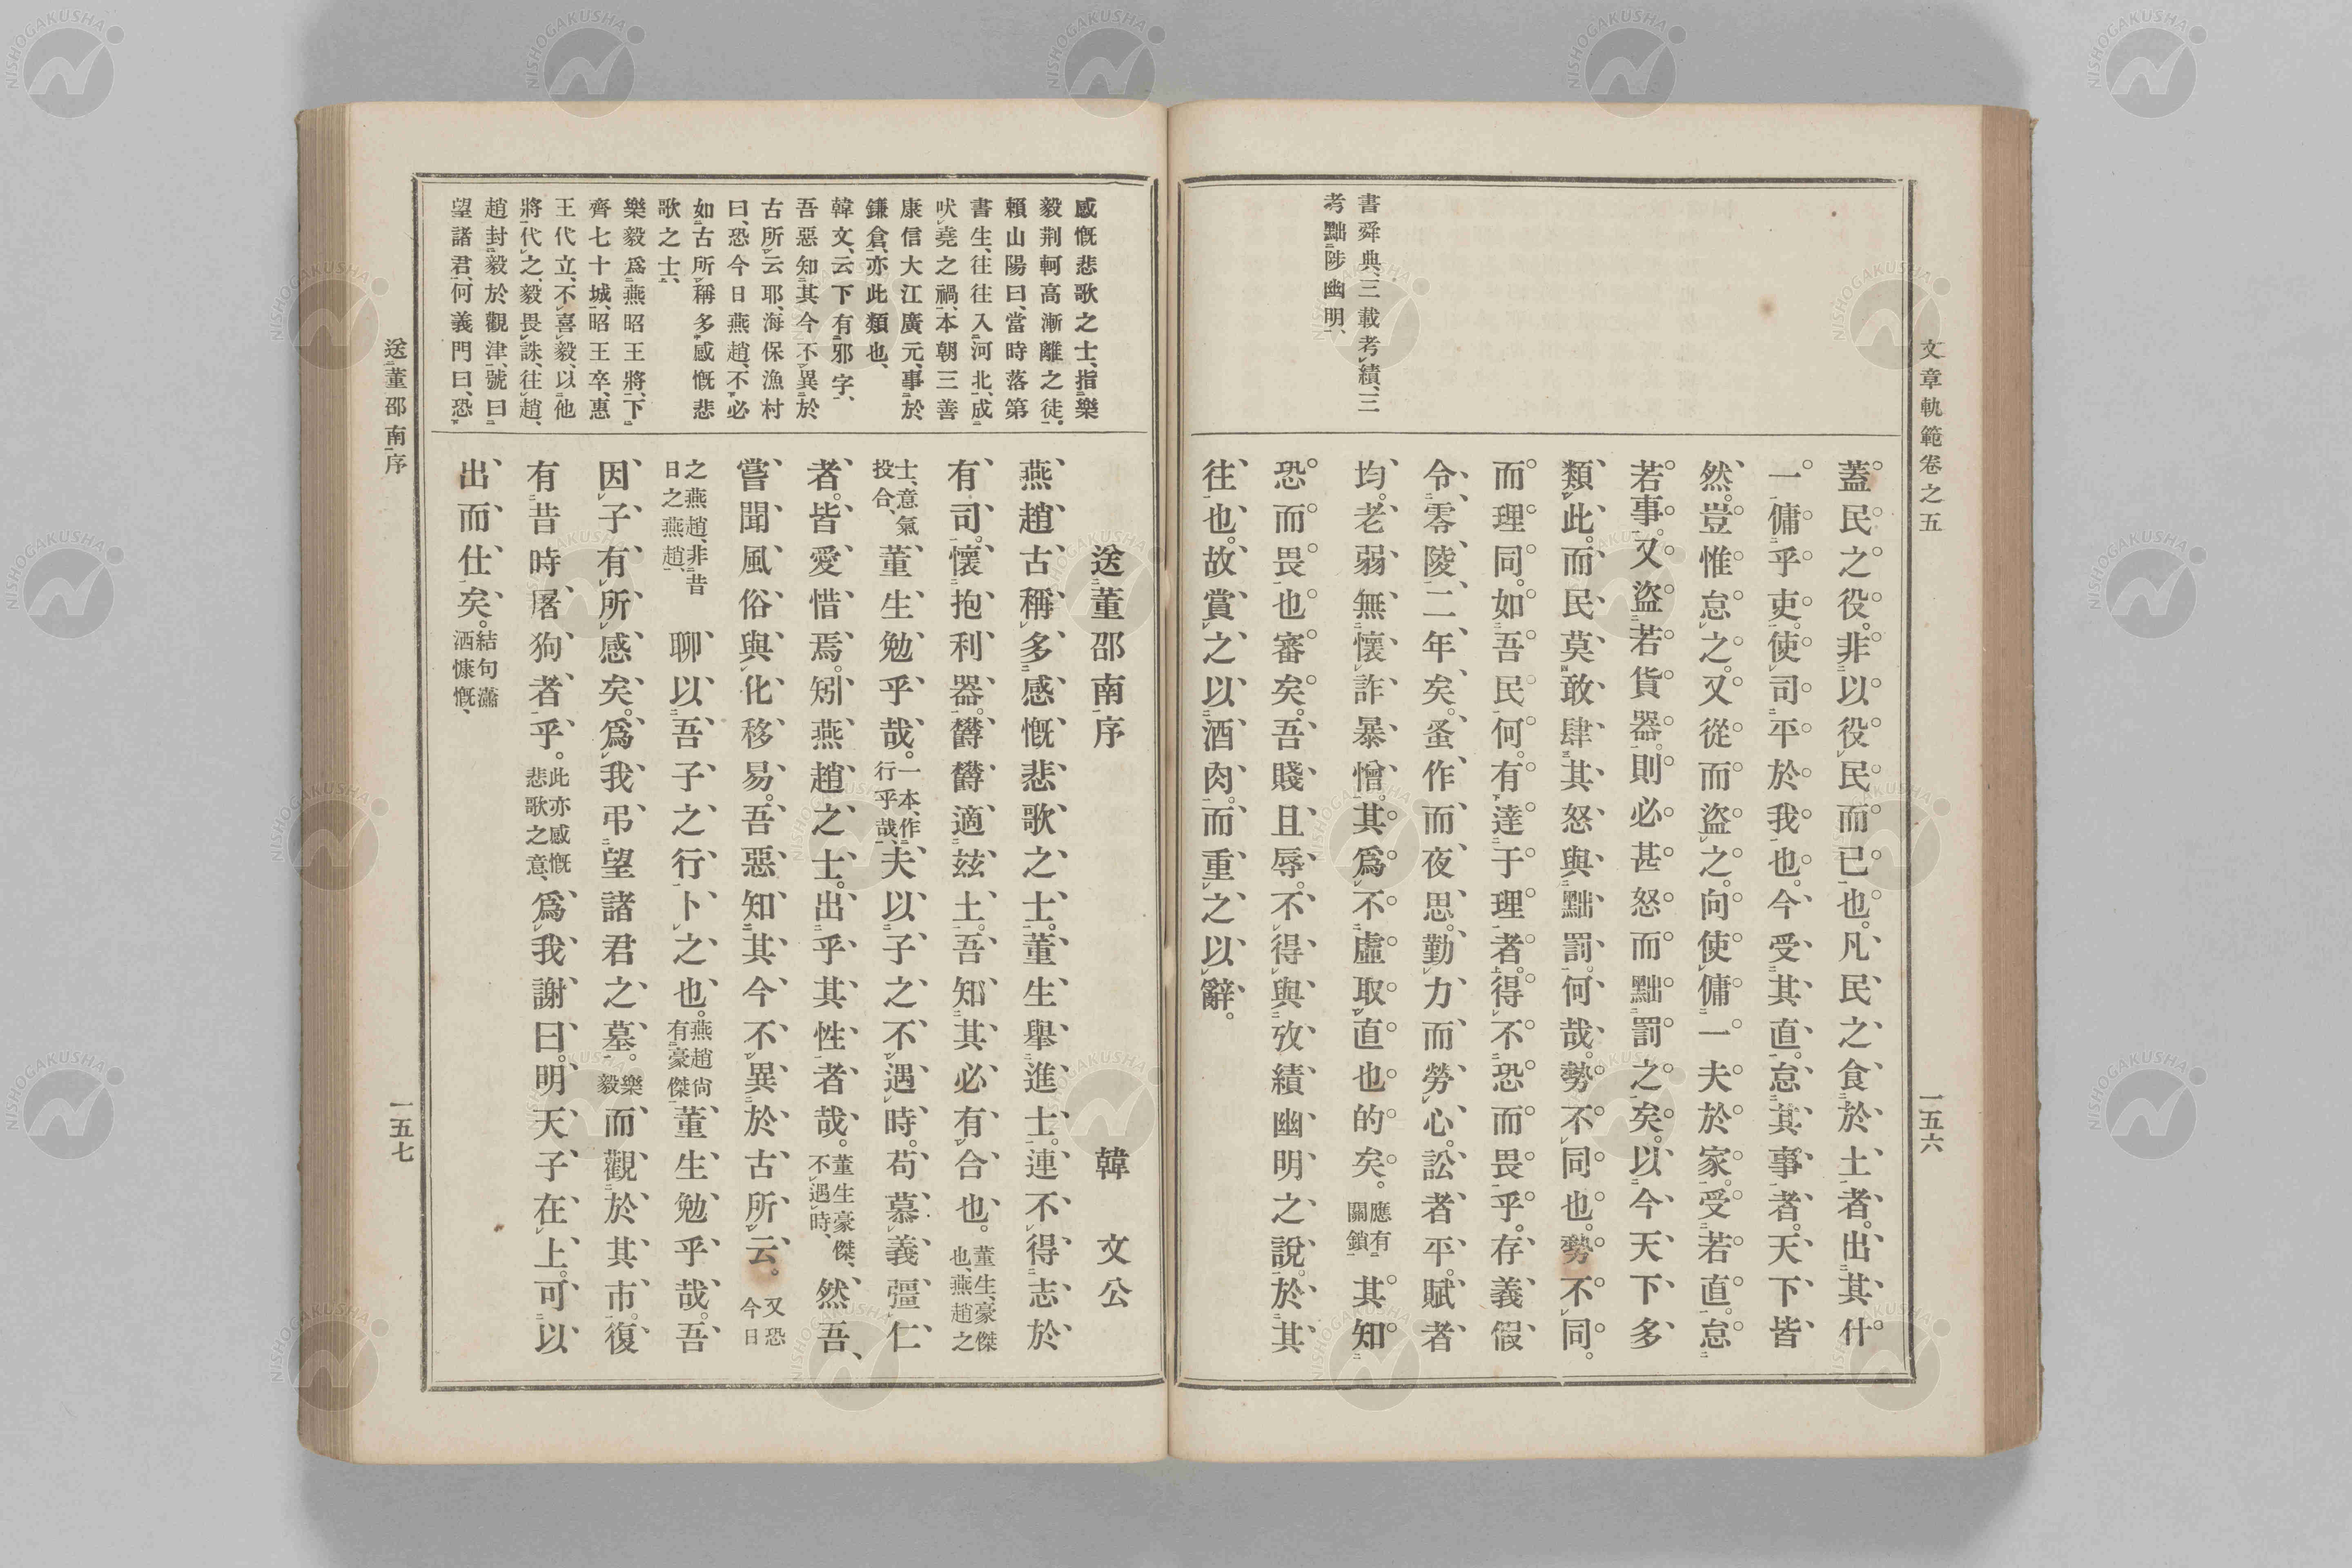 文章軌範卷之五
一五六
書舜典、三載考績、三
考黜陟幽明、
蓋民之役。非以役民而已也。凡民之食於土者。出其什
一傭乎吏。使司平於我也。今受其直。怠其事者。天下皆
然。豈惟怠之。又從而盜之。向使傭一夫於家。受若直。怠
若事。又盜若貨器。則必甚怒而黜罰之矣。以今天下多
類此。而民莫敢肆其怒與黜罰。何哉。勢不同也。勢不同。
而理同。如吾民何。有達于理者。得不恐而畏乎。存義假
令零陵二年矣。蚤作而夜思。勤力而勞心。訟者平。賦者
均。老弱無懷詐暴憎。其爲不虛取直也的矣。應有關鎖其知
恐而畏也審矣。吾賤且辱。不得與攷績幽明之說。於其
往也。故賞之以酒肉。而重之以辭。
感慨悲歌之士、指樂
毅荆軻高漸離之徒。
賴山陽曰、當時落第
書生、往往入河北、成
吠堯之禍、本朝三善
康信大江廣元、事於
鎌倉、亦此類也、
韓文、云下有邪字、
吾惡知其今不異於
古所云耶、海保漁村
曰、恐今日燕趙、不必
如古所稱多感慨悲
歌之士、
樂毅爲燕昭王將、下
齊七十城、昭王卒、惠
王代立、不喜毅、以他
將代之、毅畏誅、往趙、
趙封毅於觀津、號曰
望諸君、何義門曰、恐
送董邵南序 韓文公
燕趙古稱多感慨悲歌之士。董生舉進士。連不得志於
有司。懷抱利器。欝欝適玆土。吾知其必有合也。董生、豪傑也、燕趙之
士、意氣投合、董生勉乎哉。一本、作行乎哉、夫以子之不遇時。苟慕義彊仁
者。皆愛惜焉。矧燕趙之士。出乎其性者哉。董生豪傑、不遇時、然吾
嘗聞風俗與化移易。吾惡知其今不異於古所云。又恐今日
之燕趙、非昔日之燕趙、聊以吾子之行卜之也。燕趙尙有豪傑董生勉乎哉。吾
因子有所感矣。爲我弔望諸君之墓。樂毅而觀於其市。復
有昔時屠狗者乎。此亦感慨悲歌之意、爲我謝曰。明天子在上。可以
出而仕矣。結句瀟洒慷慨、
送董邵南序
一五七